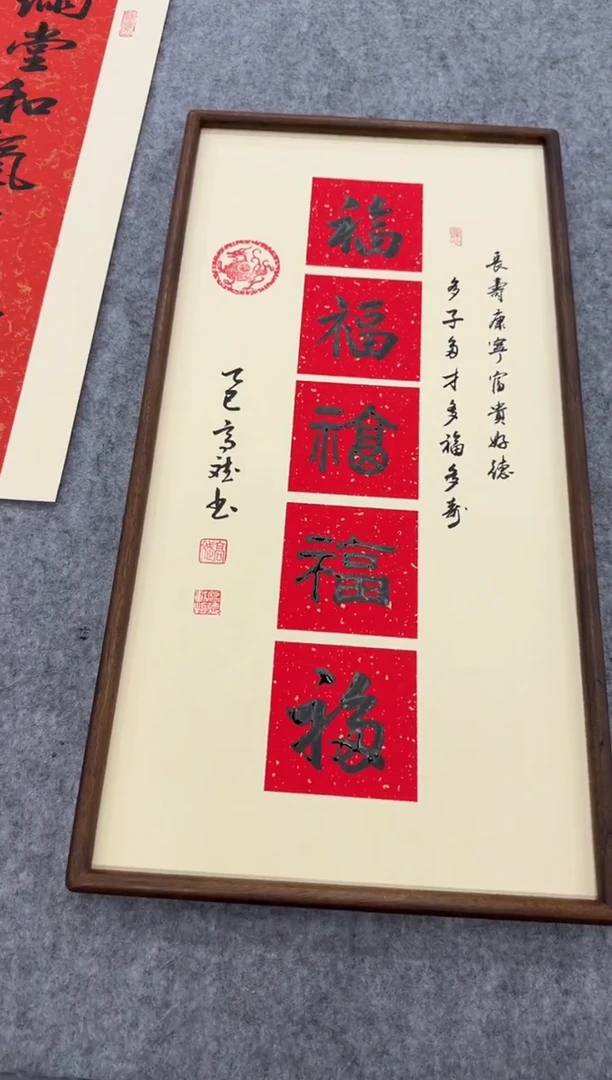 滿堂和氣
長壽康寧富貴好德
多子多才多福多壽
福
福
福
福
福
乙巳高斌書